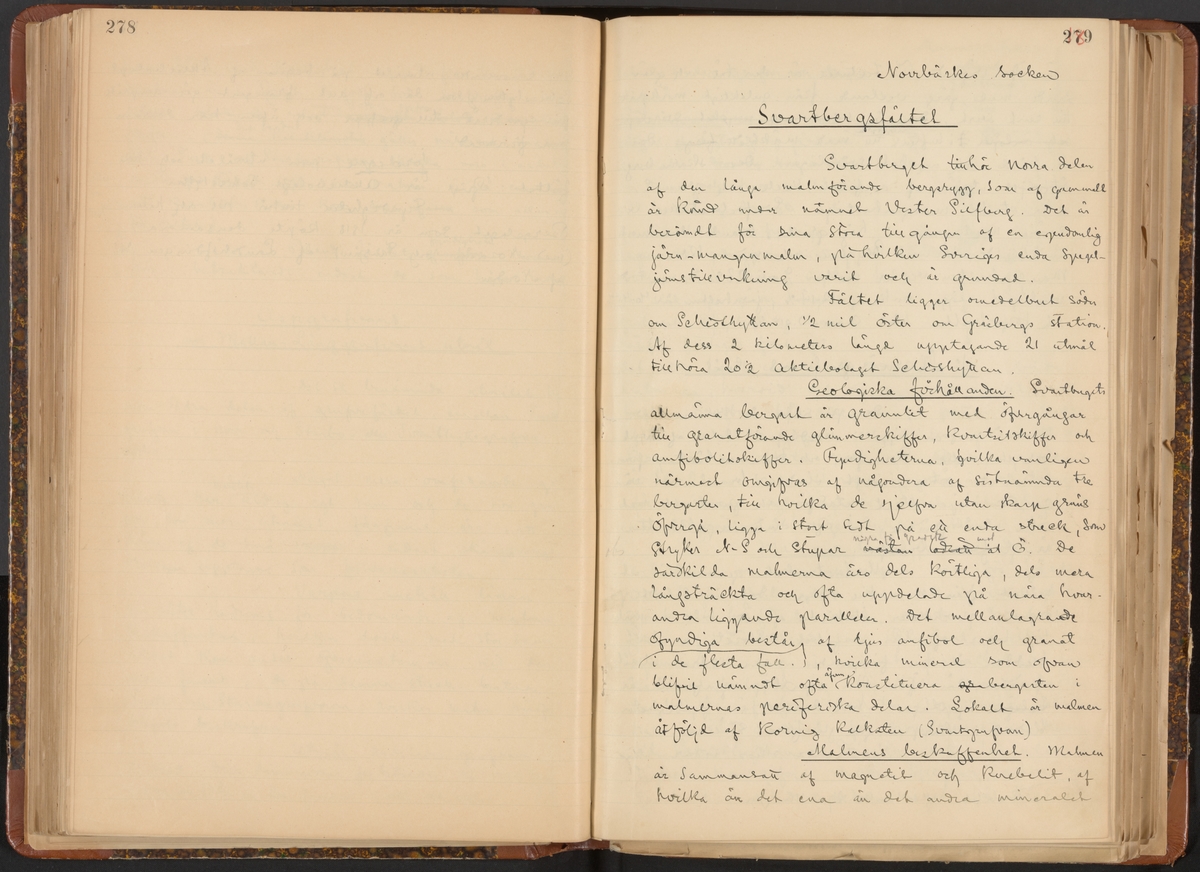 278
279
Norrbärkes socken
Svartbergsfältet
Svartberget tillhör norra delen
af den långa malmförande bergsrygg, som af gammalt
är känd under namnet Vester Silfberg. Det är
berömdt för sina stora tillgångar af en egendomlig
järn-manganmalm, på hvilken Sveriges enda spegel-
järnstillverkning varit och är grundad.
Fältet ligger omedelbart söder
om Schisshyttan, 1/2 mil öster om Gräsbergs station.
Af dess 2 kilometers längd upptagande 21 utmål
tillhöra 20 1/2 Aktiebolaget Schisshyttan.
Geologiska förhållanden. Svartbergets
allmänna bergart är granulit med öfvergångar
till granatförande glimmerskiffer, kvartsitskiffer och
amfibolitskiffer. Fyndigheterna, hvilka vanligen
närmast omgifvas af någondera af sistnämnda tre
bergarter, till hvilka de sjelfva utan skarp gräns
öfvergå, ligga i stort sedt på ett enda streck, som
stryker N-S och stupar nästan lodrätt åt Ö. De
några grader mot
särskilda malmerna äro dels körtliga, dels mera
långsträckta och ofta uppdelade på nära hvar-
andra liggande paralleler. Det mellanlagrande
ofyndiga består af ljus amfibol och granat
i de flesta fall.), hvilka mineral som ofvan
blifvit nämndt ofta äfven konstituera bergarten i
malmernas periferiska delar. Lokalt är malmen
åtföljd af kornig kalksten (Svartgrufvan)
Malmens beskaffenhet. Malmen
är sammansatt af magnetit och knebelit, af
hvilka än det ena än det andra mineralet